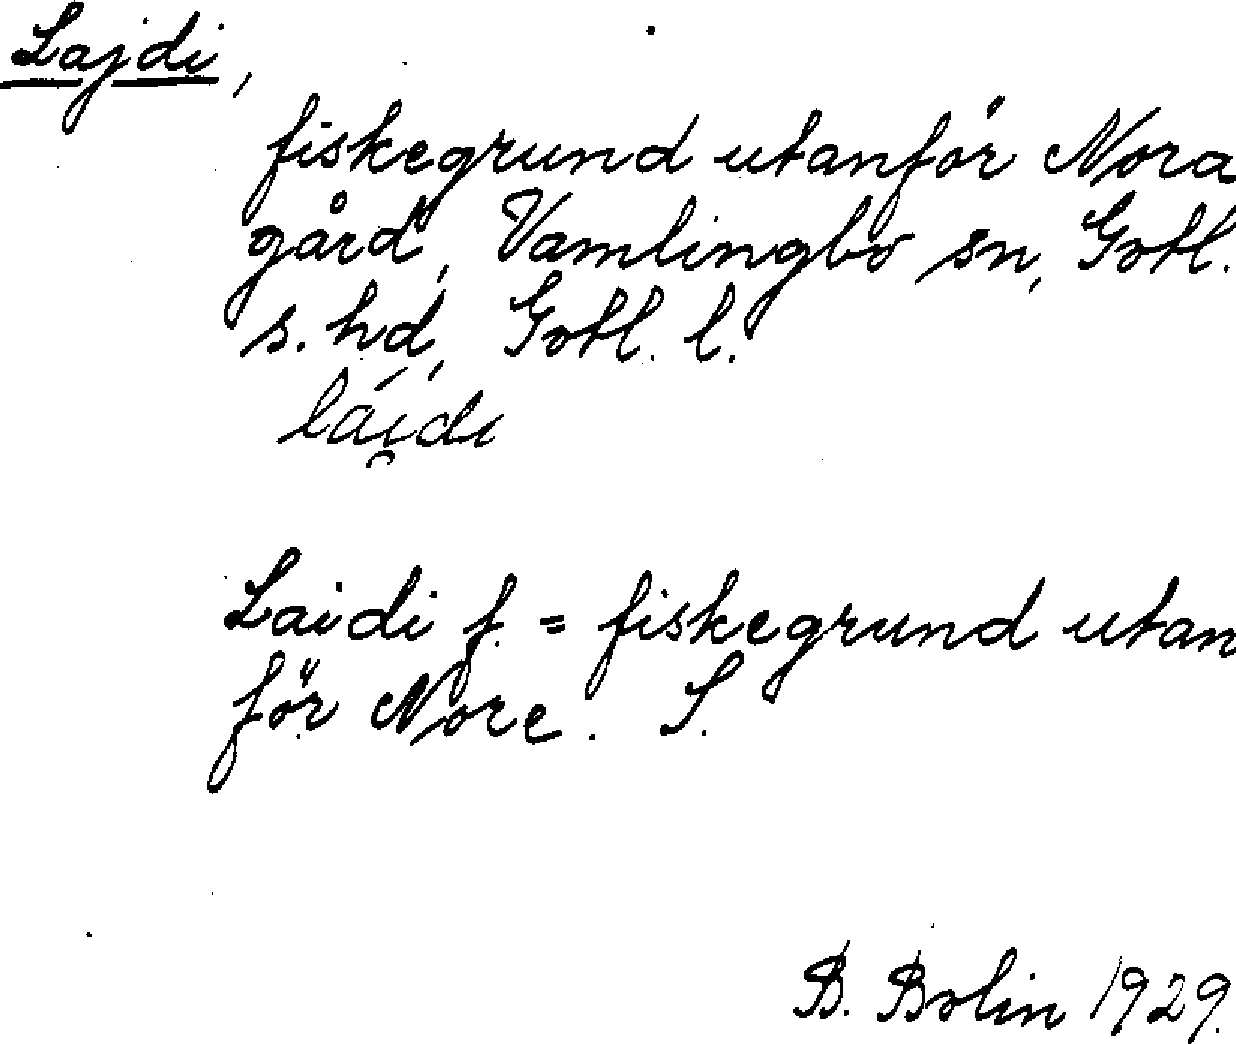 Lajdi,
fiskegrund utanför Nora
gård, Vamlingbo sn, Gotl.
s. hd, Gotl. l.
lái̯di
Laidi f. = fiskegrund utan
för Nore. S.
B. Bolin 1929.